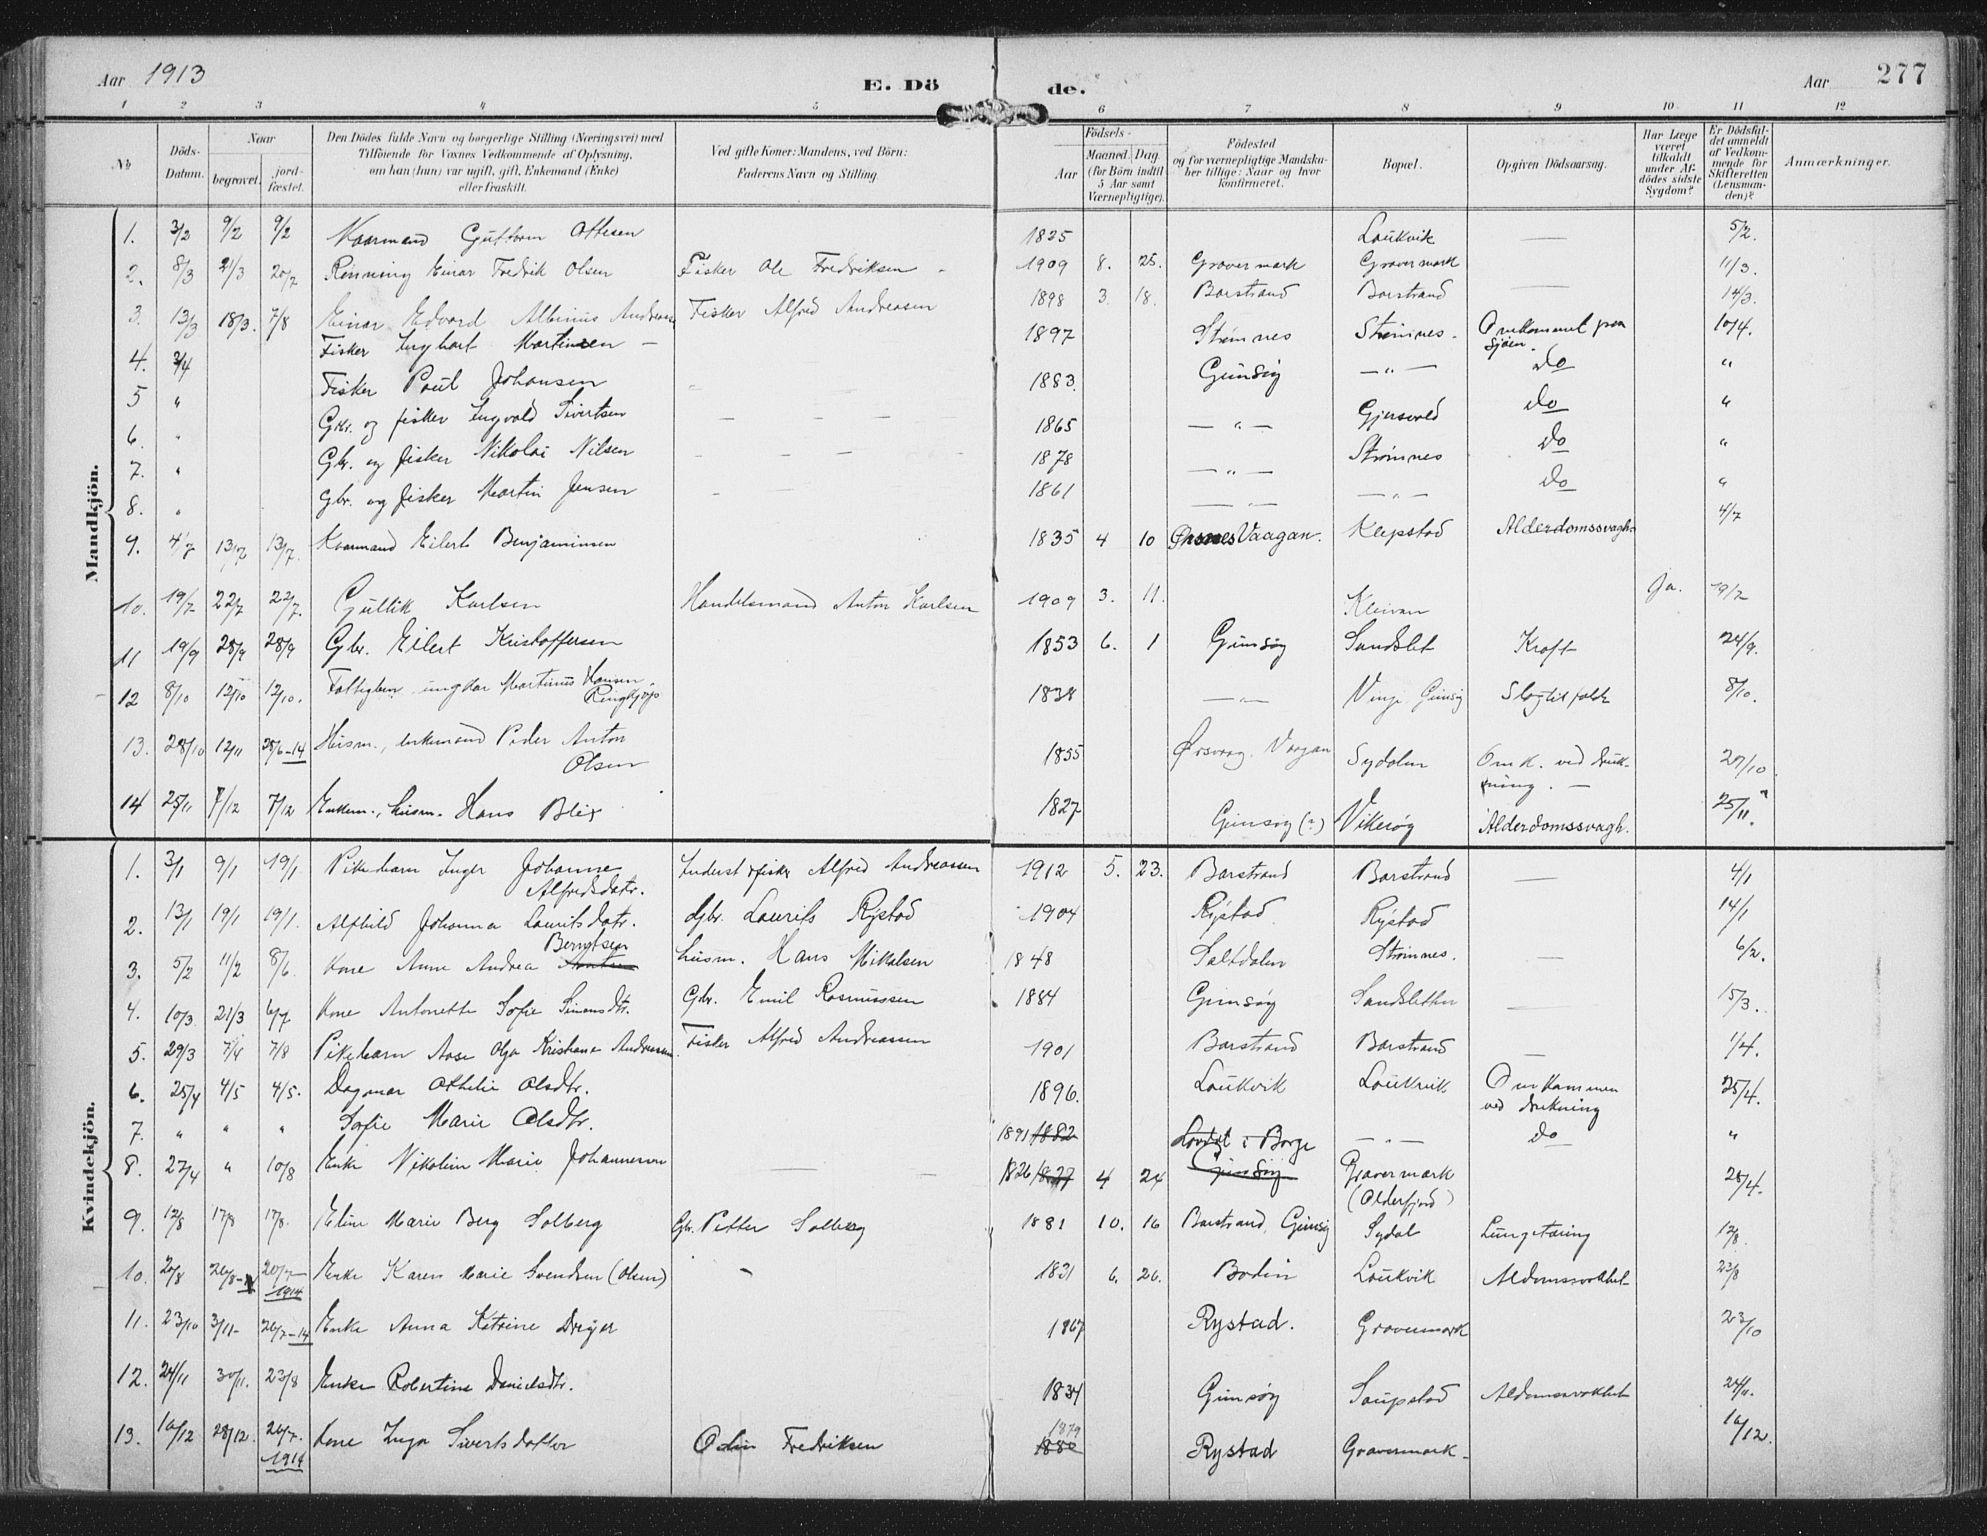 Aar 1913 E. Dö de. Aar 277
1 2 3 4 5 6 7 8 9 10 11 12
No Döds-Datum. Naar begravet. jord-fæstet. Den Dödes fulde Navn og borgerlige Stilling (Næringsvei) med Tilföiende for Voxnes Vedkommende af Oplysning, om han (hun) var ugift, gift, Enkemand (Enke) eller fraskilt. Ved gifte Koner: Mandens, ved Börn: Faderens Navn og Stilling. Födsels- Aar Maaned. Dag. (for Börn indtil 5 Aar samt Værnepligtige). Födested og for værnepligtige Mandskaber tillige: Naar og hvor konfirmeret. Bopæl. Opgiven Dödsaarsag. Har Læge været tilkaldt under Afdödes sidste Sygdom? Er Dödsfaldet anmeldt af Vedkommende for Skifteretten (Lensmanden)? Anmærkninger.
Mandkjön.
1. 3/2 9/2 9/2 Kaarmand Guttorm Ottesen 1825 Laukvik — 5/2.
2. 8/3 21/3 20/7 Rønning Einar Fredrik Olsen Fisker Ole Fredriksen 1909 8. 25. Gravermark Gravermark 11/3.
3. 13/3 18/3. 7/8 Einar Edvard Albinus Andreas Fisker Alfred Andreasen 1898 3. 18. Barstrand Barstrand — 14/3.
4. 3/4 Fisker Inghart Martinsen — 1897 Strømnes Strømnes. Omkommet paa Sjøen. 10/4.
5 " Fisker Paul Johansen 1883. Gimsøy — " — do "
6. " Gbr. og fisker Ingvald Sivertsen — — — 1865 — " — Gjersvold do "
7. " Gbr. og fisker Nikolai Nilsen — — — 1878 — " — Strømnes do "
8. " Gbr. og fisker Martin Jensen 1861 — " — — " — do "
9. 4/7 13/7 13/7. Kaarmand Eilert Benjaminsen 1835 4 10 Vaagan. Klepstad Alderdomssvagh. 4/7
10. 19/7 22/7 22/7. Gullik Karlsen Handelsmand Anton Karlsen 1909 3. 11. Kleivan Ja. 19/7
11 19/9 28/9 28/9 Gbr. Eilert Kristoffersen 1853 6. 1 Gimsøy Sandslet Kræft 24/9.
12 8/10 12/10 12/10. Fattiglem ungkar Martinus Hansen. 1838 — " — Vinje Gimsøy Slagtilfælde 8/10.
13. 28/10 12/11 28/6-14 Husm., enkemand Peder Anton Olsen 1855 Ørsvaag. Vaagan Sydalen Omk. ved drukning. — 27/10
14 25/11 7/12 7/12 Enkem., husm. Hans Blix 1827 Gimsøy (?) Vikesøy Alderdomssvagh. 25/11.
Kvindekjön.
1. 3/1 9/1 19/1 Pikebarn Inger Johanne Alfredsdatr. Inderst & fisker Alfred Andreassen 1912 5. 23. Barstrand Barstrand — 4/1
2. 13/1 19/1 19/1. Alfhild Johanna Lauritsdatr. Gbr. Laurits Rystad 1904 Rystad. Rystad 14/1
3. 5/2 11/2 8/6. Kone Anne Andrea Berntsen husm. Hans Mikalsen 1848 Saltdalen Strømnes. — 6/2.
4. 10/3 21/3 6/7 Kone Antonette Sofie Simonsdtr. Gbr. Emil Rasmussen 1884 Gimsøy Sandsletten — 15/3.
5. 29/3 7/4 7/8 Pikebarn Aase Olga Kristiane Andreassen Fisker Alfred Andreassen 1901 Barstrand Barstrand — 1/4.
6. 25/4 4/5 4/5. Dagmar Othilie Olsdtr. 1896. Laukvik Laukvik Omkommen ved drukning 25/4.
7. " " " Sofie Marie Olsdtr. 1891 1882 — " — do "
8. 27/4 " 10/8 Enke Nikoline Marie Johannesen — — 1826 1827 4 24 i Borge Gimsøy Gravermark (Olderfjord) 28/4.
9. 12/8 17/8 17/8. Eline Marie Berg Solberg Gbr. Petter Solberg 1881 10. 16 Barstrand, Gimsøy Sydal Lungetæring 12/8.
10. 20/8 26/8- 20/7- 1914 Enke Karen Marie Svendsen (Olsen) — 1831 6. 26. Bodin Laukvik Alderdomssvakhet 23/8
11. 23/10 3/11- 26/7-14 Enke Anna Katrine Dreyer 1867 Rystad. Gravermark 23/10
12. 24/11 30/11. 23/8 Enke Robertine Danielsdtr. 1834 Gimsøy Saupstad Alderdomssvakhet 24/11.
13. 16/12 28/12. 26/7. 1914 Kone Inga Sivertsdatter Odin Fredriksen 1879 1880 Rystad Gravermark. 16/12.